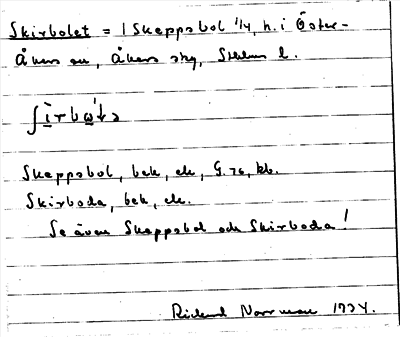 Skirbolet = 1 Skeppsbol 1/4, h. i Öster-
Åkers sn, Åkers skg, Sthlms l.
Skeppsbol, bek, ek, G. 76, kb.
Skirboda, bek, ek.
Se även Skeppsbol och Skirboda!
Rickard Norrman 1934.